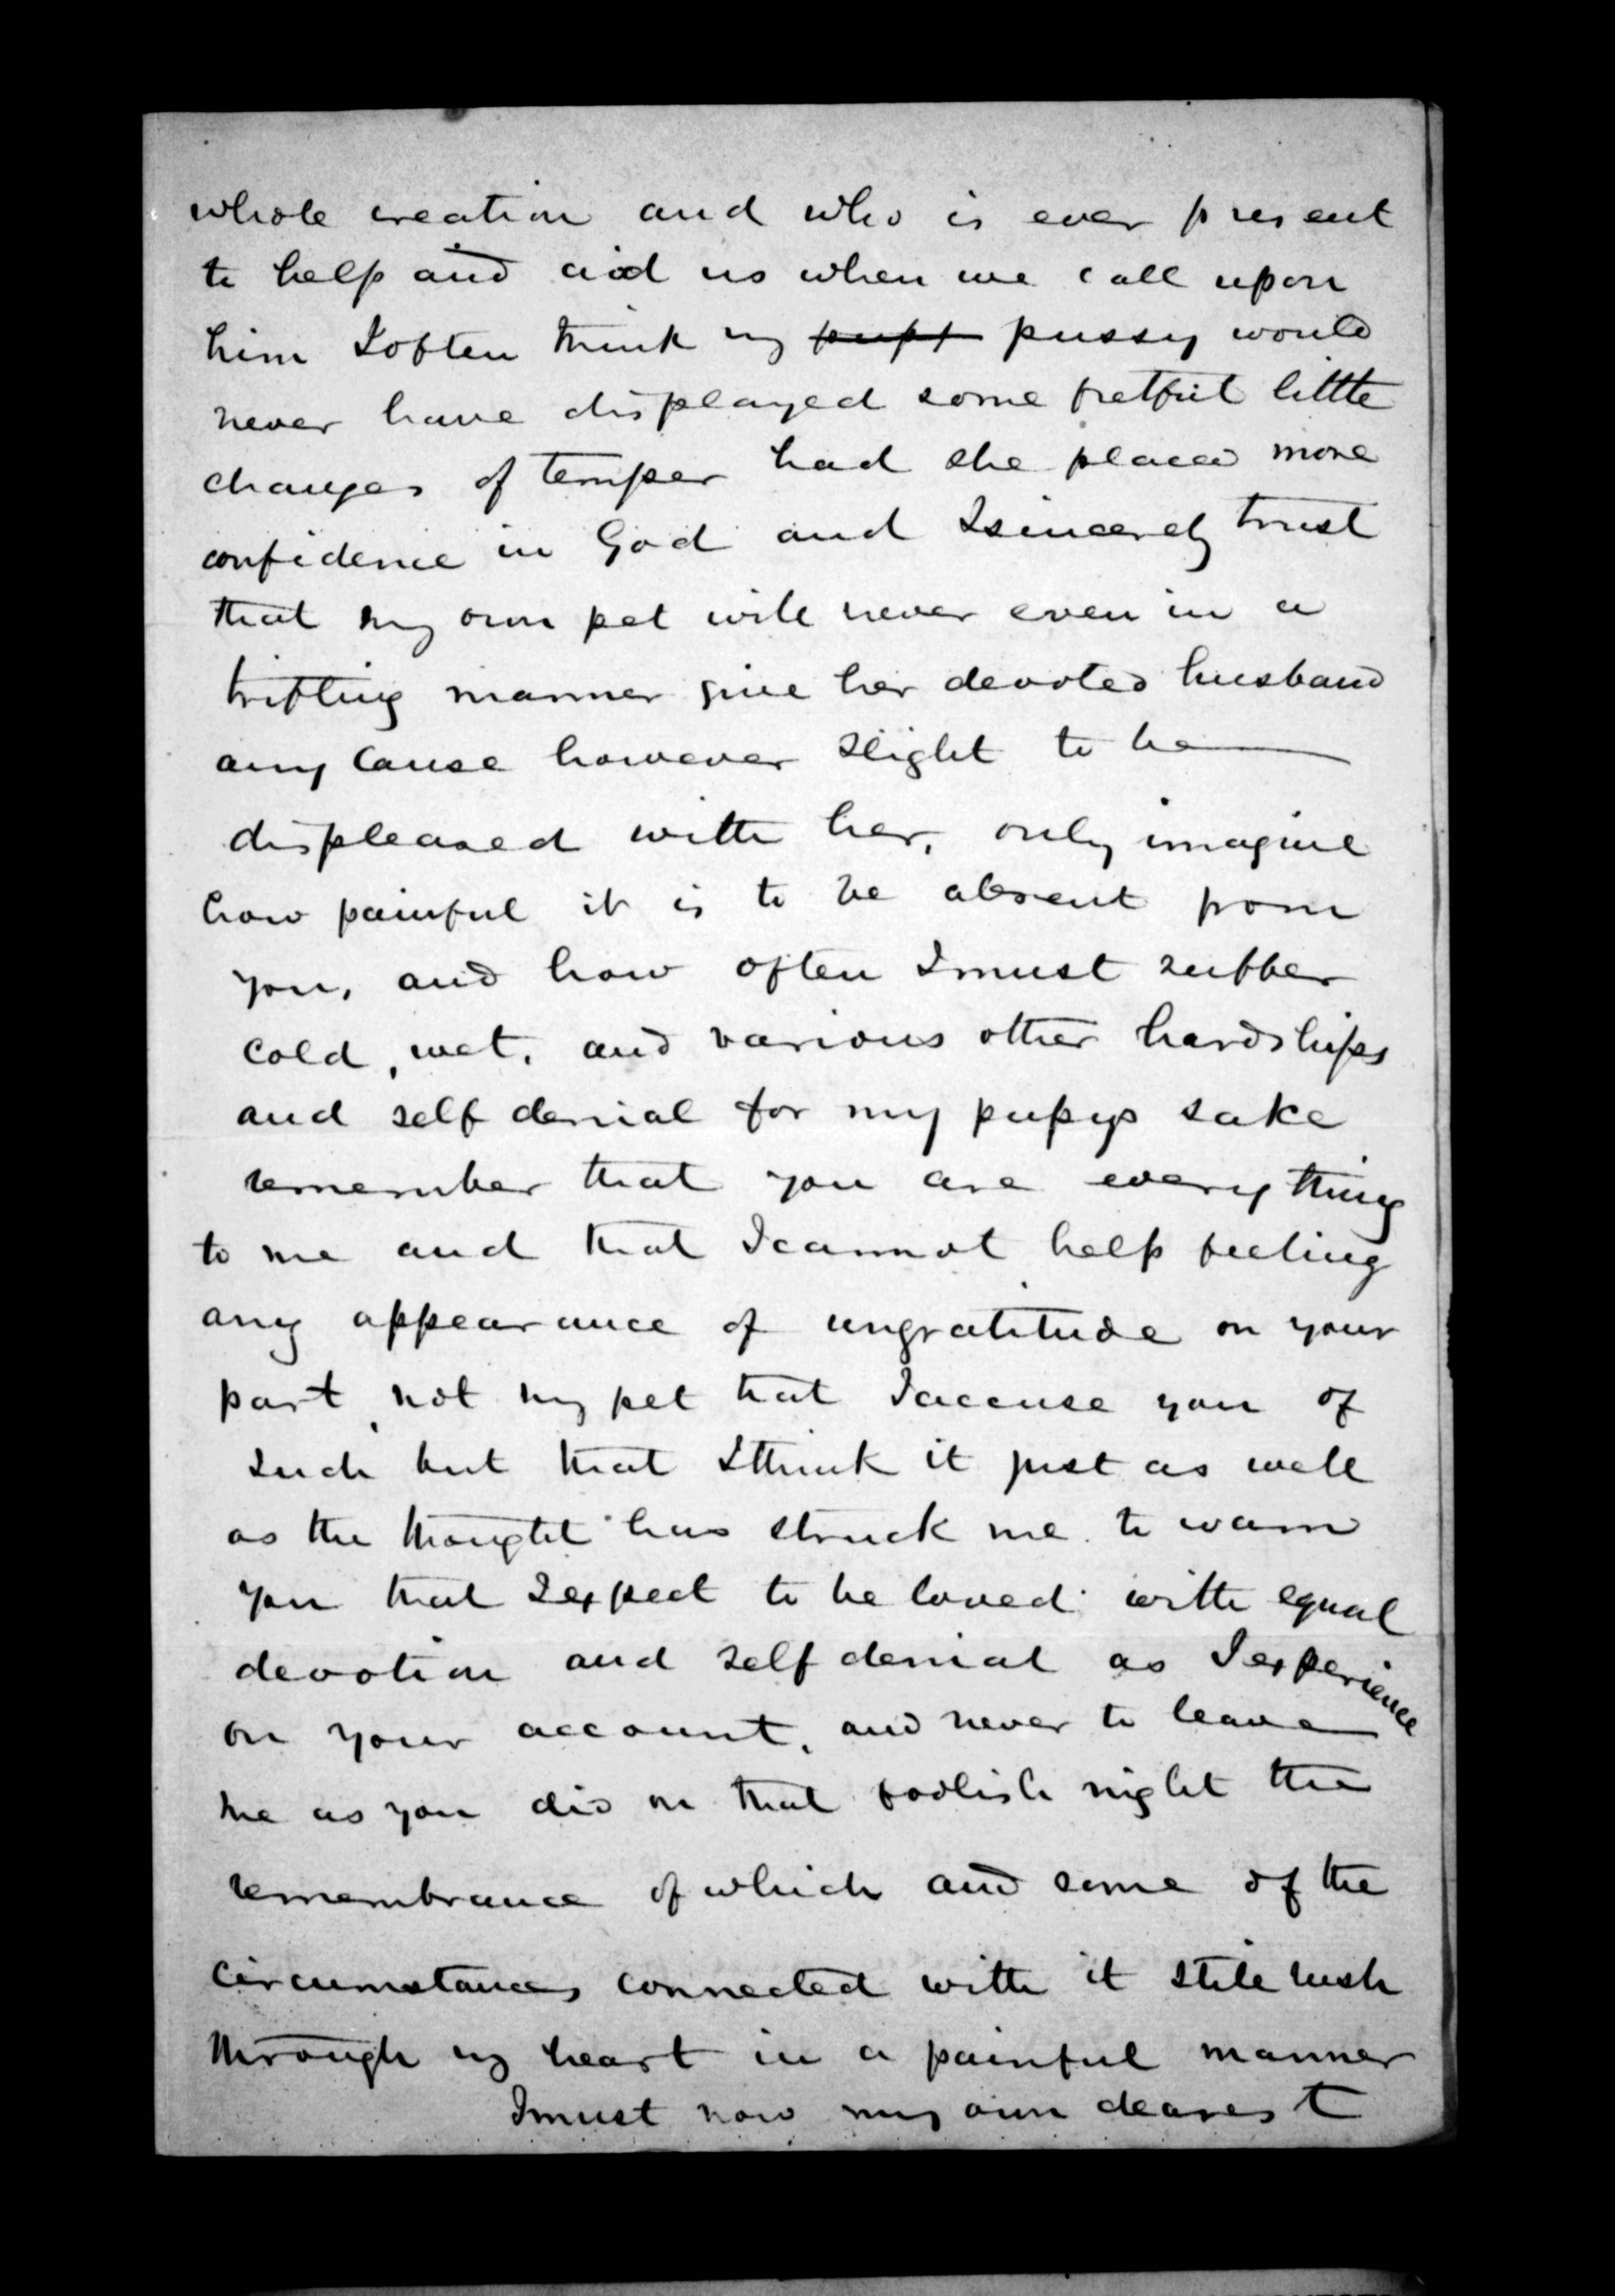 whole creation and who is ever present
to help and aid us when we call upon
him I often think my pupp pussy would
never have displayed some fretful little
changes of temper had she placed more
confidence in God and I sincerely trust
that my own pet will never even in a
trifling manner give her devoted husband
any cause however slight to be
displeased with her, only imagine
how painful it is to be absent from
you, and how often I must suffer
cold, wet, and various other hardships
and self denial for my pupys sake
remember that you are every thing
to me and that I cannot help feeling
any appearance of ungratitude on your
part, not my pet that I accuse you of
such but that I think it just as well
as the thought has struck me to warn
you that I expect to be loved with equal
devotion and self denial as I experience
on your account, and never to leave
me as you did on that foolish night the
remembrance of which and some of the
circumstances connected with it still rush
through my heart in a painful manner
I must now my own dearest